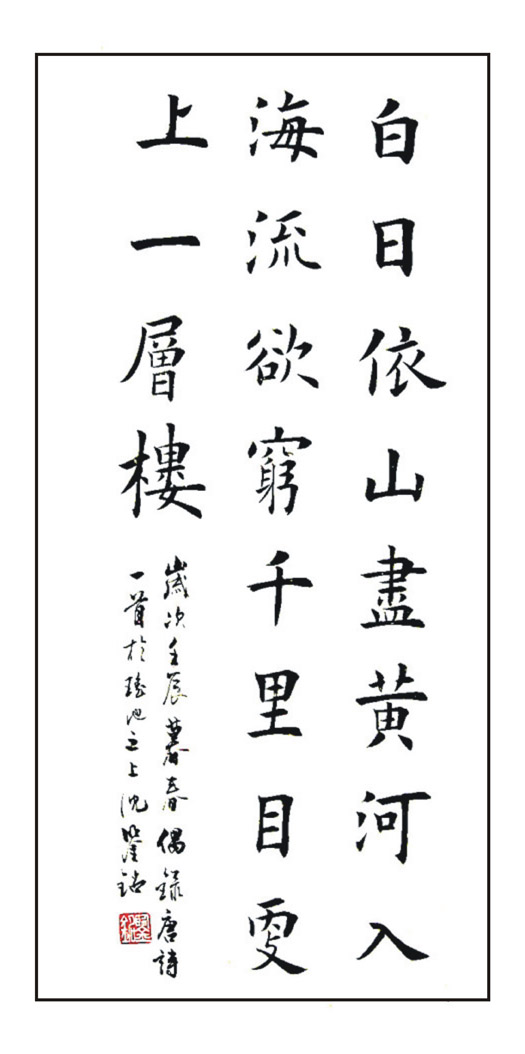 白日依山盡黄河入
海流欲窮千里目更
上一層樓
歲次壬辰暮春偶録唐詩
一首於瑤池之上沈鑒銘